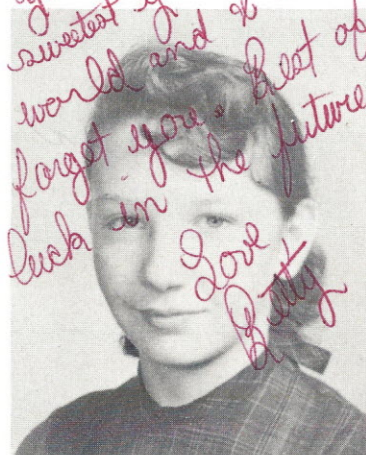 sweetest
world and
forget you. Best of
luck in the future
Love
Betty